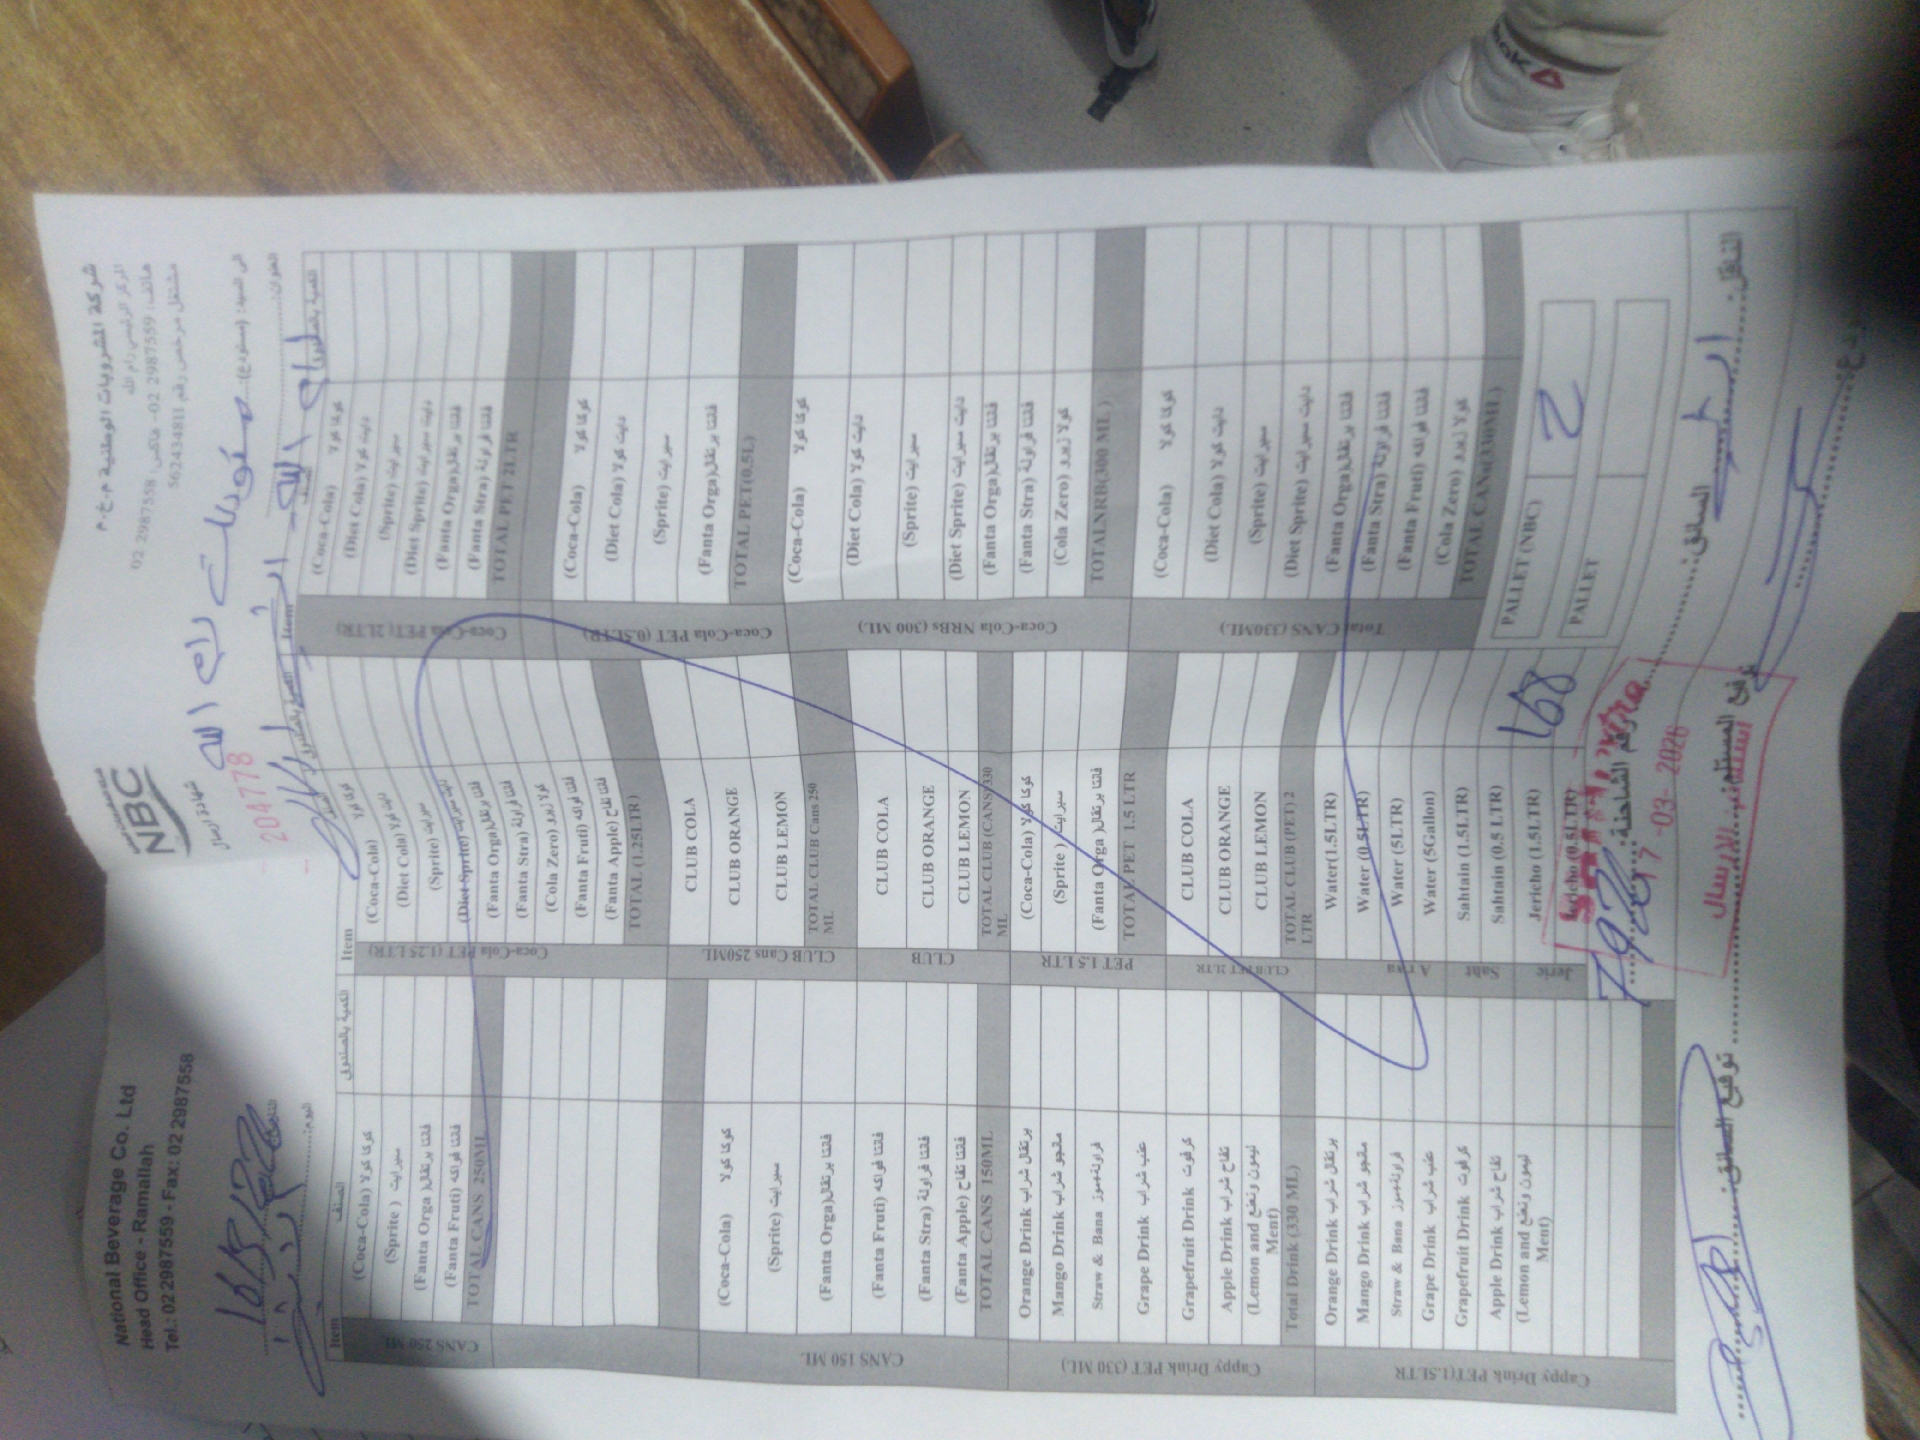 National Beverage Co. Ltd
Head Office - Ramallah
Tel.: 02 2987559 - Fax: 02 2987558
NBC
شركة المشروبات الوطنية م.خ.م
المركز الرئيسي رام الله
هاتف: 2987559 02- فاكس: 2987558 02
مشتغل مرخص رقم 562434811
شهادة ارسال
204778
الى السيد: (مستودع):
رام الله
العنوان:
اليوم:
Item الصنف الكمية بالصندوق
CANS 250 ML
(Coca-Cola) كوكا كولا
(Sprite ) سبرايت
(Fanta Orga )فانتا برتقال
(Fanta Fruti) فانتا فواكه
TOTAL CANS 250ML
CANS 150 ML
(Coca-Cola) كوكا كولا
(Sprite) سبرايت
(Fanta Orga)فانتا برتقال
(Fanta Fruti) فانتا فواكه
(Fanta Stra) فانتا فراولة
(Fanta Apple) فانتا تفاح
TOTAL CANS 150ML
Cappy Drink PET (330 ML)
Orange Drink برتقال شراب
Mango Drink مانجو شراب
Straw & Bana فراولة+موز
Grape Drink عنب شراب
Grapefruit Drink كرفوت
Apple Drink تفاح شراب
(Lemon and ليمون ونعنع
Ment)
Total Drink (330 ML)
Cappy Drink PET(1.5LTR
Orange Drink برتقال شراب
Mango Drink مانجو شراب
Straw & Bana فراولة+موز
Grape Drink عنب شراب
Grapefruit Drink كرفوت
Apple Drink تفاح شراب
(Lemon and ليمون ونعنع
Ment)
Item
Coca-Cola PET (1.25 LTR)
(Coca-Cola) كوكا كولا
(Diet Cola) دايت كولا
(Sprite) سبرايت
(Diet Sprite) دايت سبرايت
(Fanta Orga)فانتا برتقال
(Fanta Stra) فانتا فراولة
(Cola Zero) كولا زيرو
(Fanta Fruti) فانتا فواكه
(Fanta Apple) فانتا تفاح
TOTAL (1.25LTR)
CLUB Cans 250ML
CLUB COLA
CLUB ORANGE
CLUB LEMON
TOTAL CLUB Cans 250
ML
CLUB
CLUB COLA
CLUB ORANGE
CLUB LEMON
TOTAL CLUB (CANS)330
ML
PET 1.5 LTR
(Coca-Cola) كوكا كولا
(Sprite ) سبرايت
(Fanta Orga )فانتا برتقال
TOTAL PET 1.5 LTR
CLUB PET 2LTR
CLUB COLA
CLUB ORANGE
CLUB LEMON
TOTAL CLUB (PET) 2
LTR
Water(1.5LTR)
Water (0.5LTR)
Water (5LTR)
Water (5Gallon)
Saht
Sahtain (1.5LTR)
Sahtain (0.5 LTR)
Jeric
Jericho (1.5LTR) 168
Jericho (0.5LTR)
Item
Coca-Cola PET( 2LTR)
(Coca-Cola) كوكا كولا
(Diet Cola) دايت كولا
(Sprite) سبرايت
(Diet Sprite) دايت سبرايت
(Fanta Orga)فانتا برتقال
(Fanta Stra) فانتا فراولة
TOTAL PET 2LTR
Coca-Cola PET (0.5LTR)
(Coca-Cola) كوكا كولا
(Diet Cola) دايت كولا
(Sprite) سبرايت
(Fanta Orga)فانتا برتقال
TOTAL PET(0.5L)
Coca-Cola NRBs (300 ML)
(Coca-Cola) كوكا كولا
(Diet Cola) دايت كولا
(Sprite) سبرايت
(Diet Sprite) دايت سبرايت
(Fanta Orga)فانتا برتقال
(Fanta Stra) فانتا فراولة
(Cola Zero) كولا زيرو
TOTALNRB(300 ML )
Total CANS (330ML)
(Coca-Cola) كوكا كولا
(Diet Cola) دايت كولا
(Sprite) سبرايت
(Diet Sprite) دايت سبرايت
(Fanta Orga)فانتا برتقال
(Fanta Stra) فانتا فراولة
(Fanta Fruti) فانتا فواكه
(Cola Zero) كولا زيرو
TOTAL CANs(330ML)
PALLET (NBC) 2
PALLET
رقم الشاحنة
السائق:
الناقل:
17 -03- 2026
توقيع السائق:
توقيع المستلم: